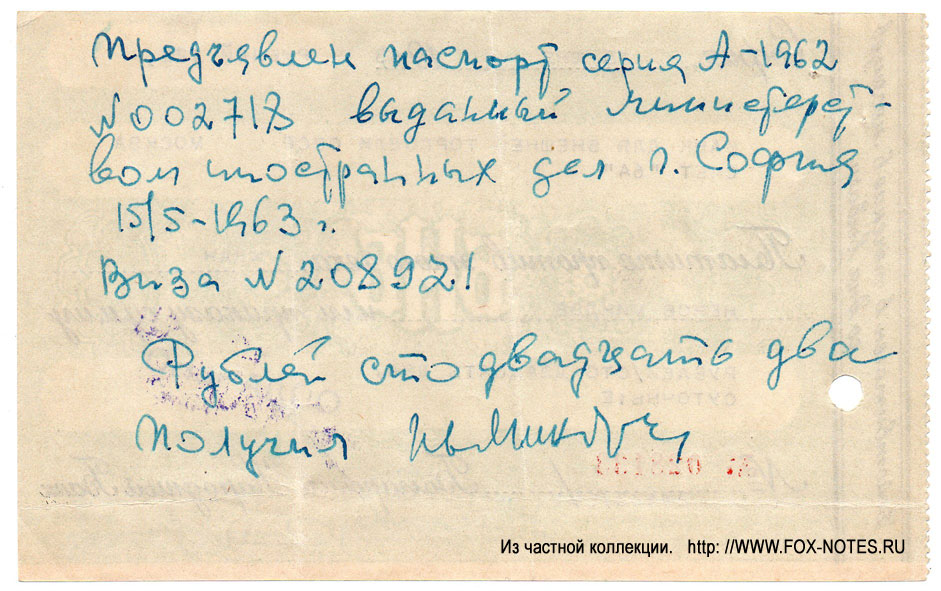 Предъявлен паспорт серия А-1962
№002718 выданный министерст-
вом иностранных дел г. София
15/5-1963 г.
Виза №208921
Рублей сто двадцать два
Получил
Из частной коллекции. http: //WWW.FOX-NOTES.RU